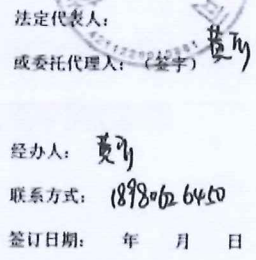 法定代表人：
或委托代理人：（签字）
经办人：
联系方式：18980626450
签订日期： 年 月 日